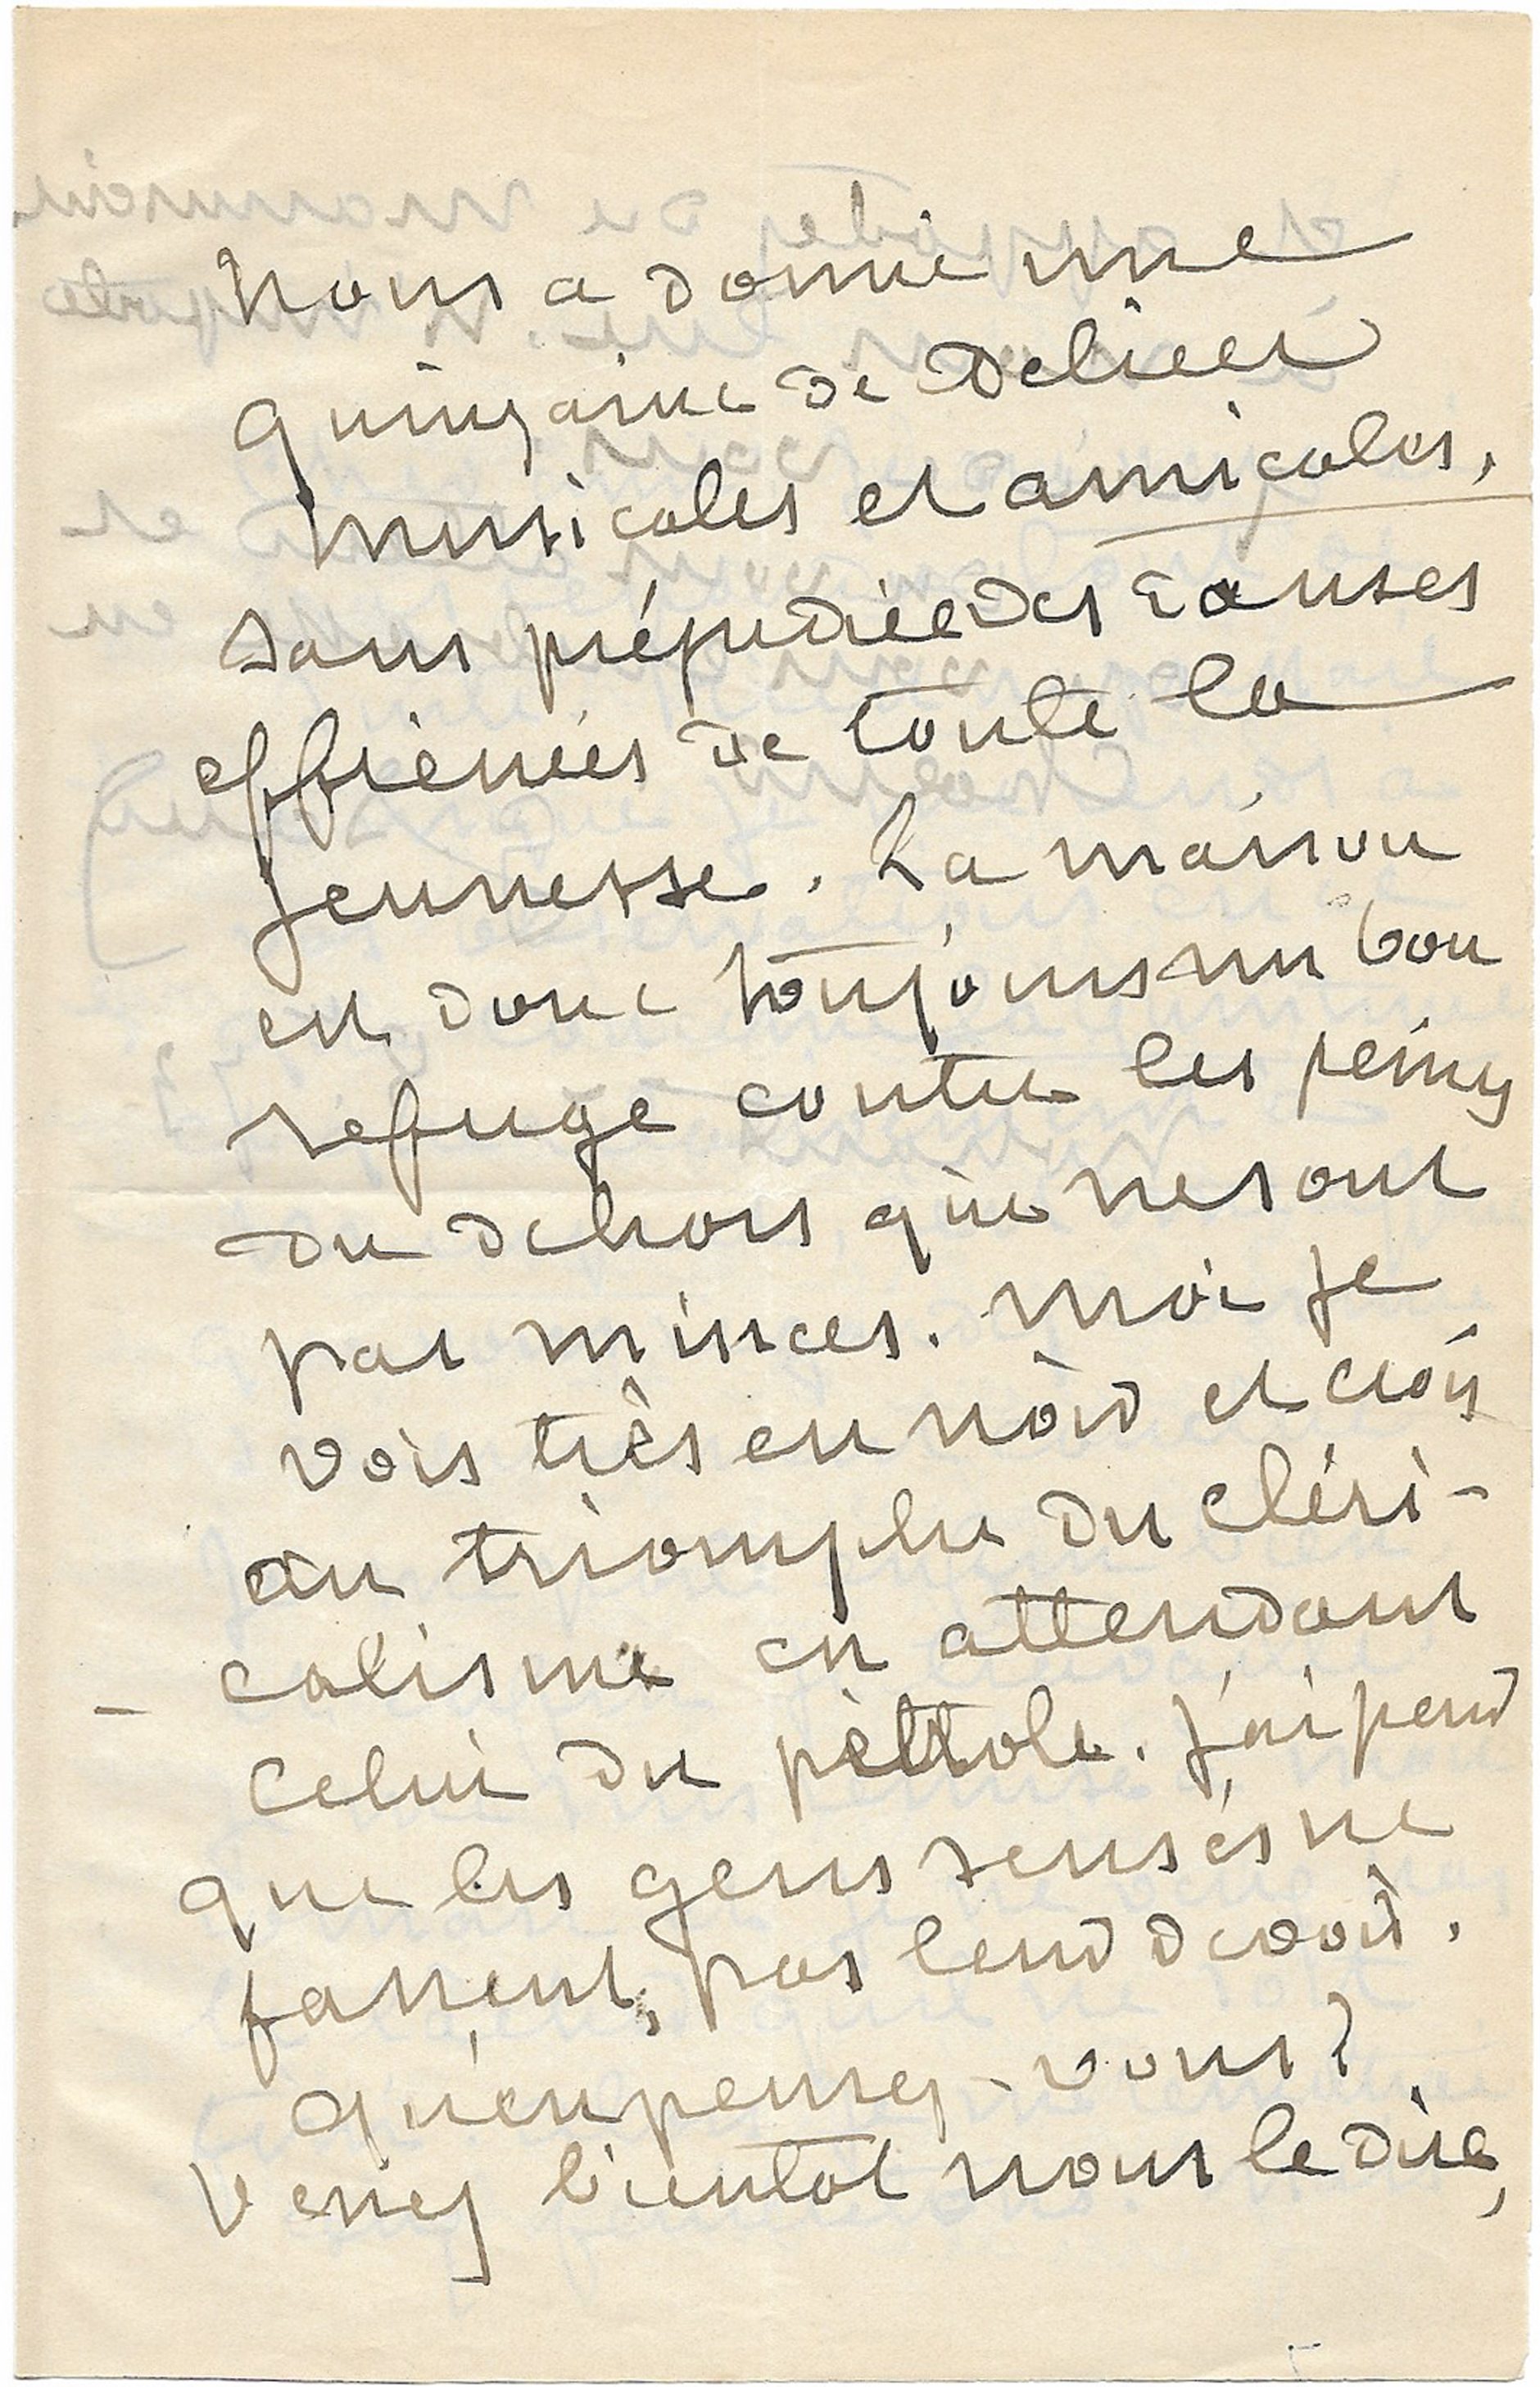 nous a donné une
quinzaine de délices
musicales et amicales,
sans préjudice des danses
effrénées de toute la
jeunesse. La maison
est donc toujours un bon
refuge contre les peines
du dehors qui ne sont
pas minces. Moi je
vois très en noir et crois
au triomphe du cléri-
- calisme en attendant
celui du pétrole. J'ai peur
que les gens sensés ne
fassent pas leur devoir.
Qu'en pensez-vous?
Venez bientot nous le dire,